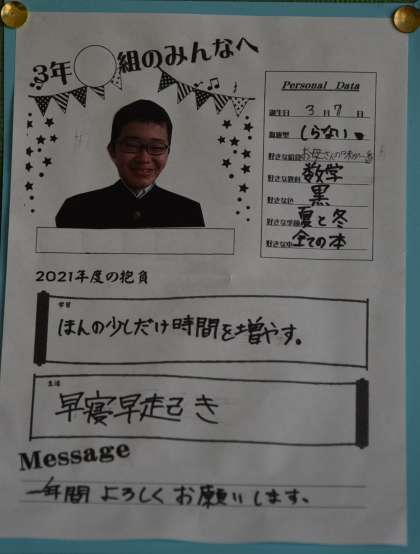 3年 組のみんなへ
Personal Data
誕生日 3月7日
血液型 しらない。
好きな給食 お母さんの
好きな教科 数学
好きな色 黒
好きな季節 夏と冬
好きな本 全ての本
2021年度の抱負
学習
ほんの少しだけ時間を増やす。
生活
早寝早起き
Message
一年間よろしくお願いします。